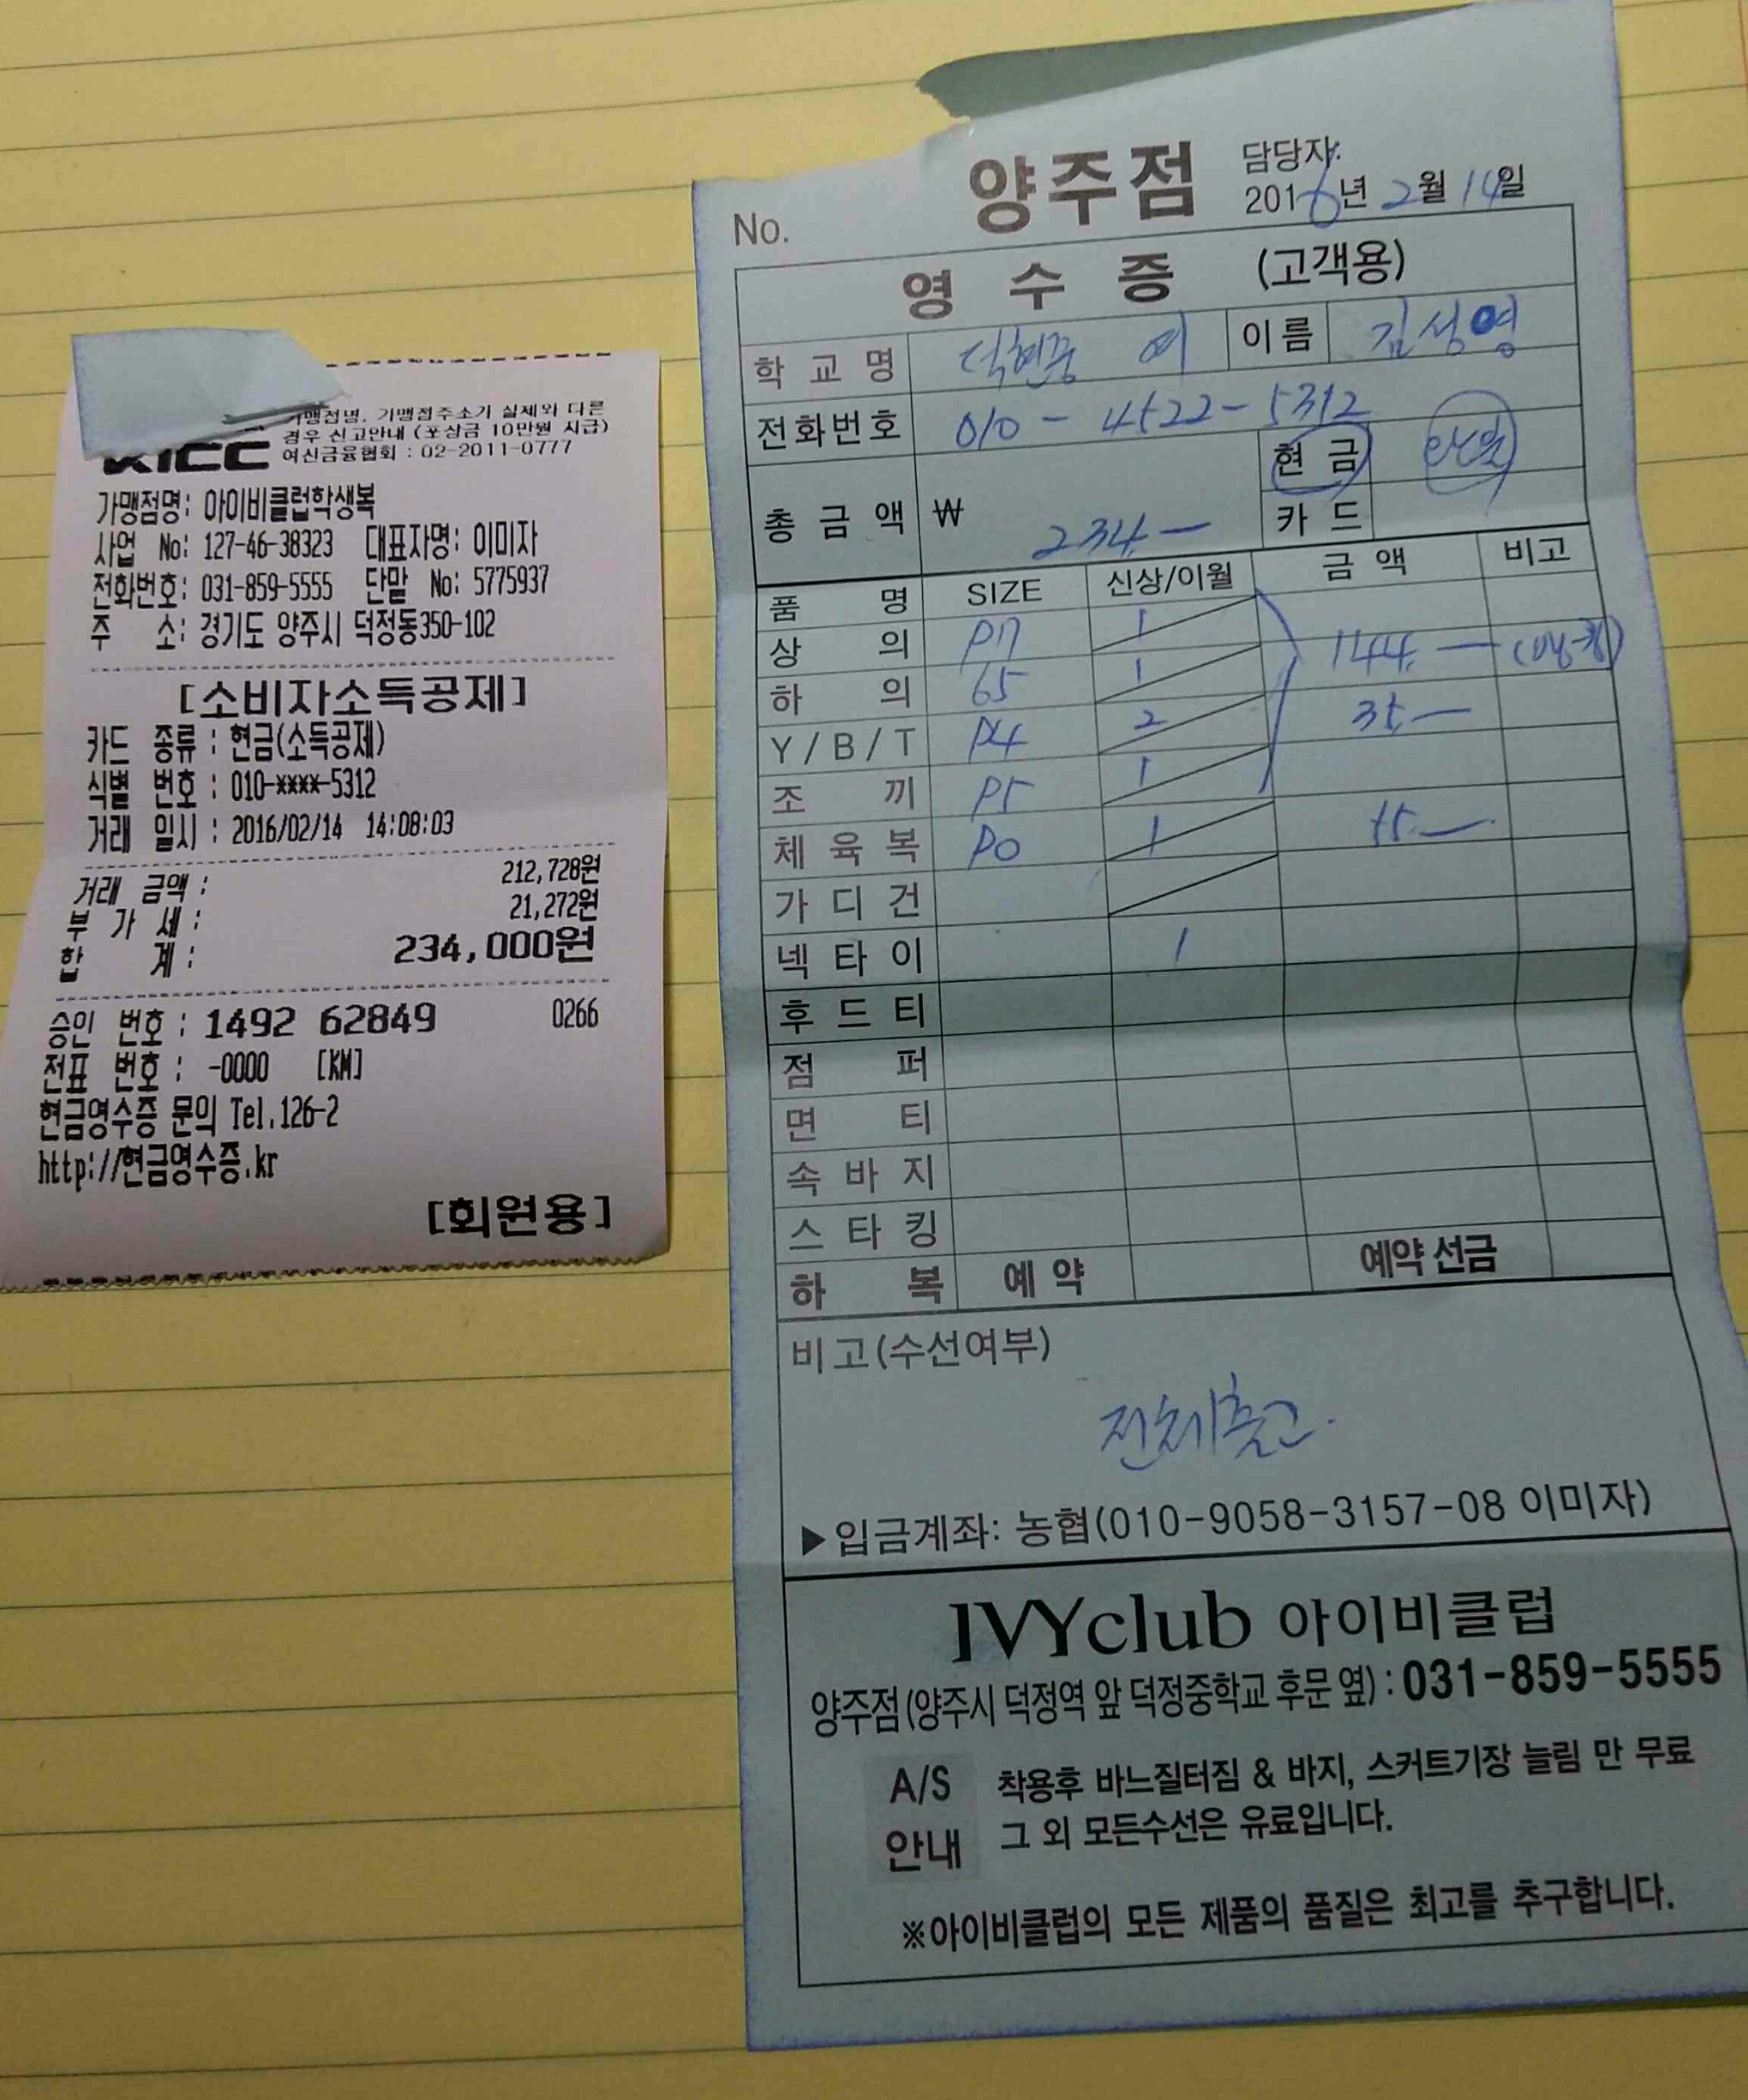 가맹점명, 가맹점주소가 실제와 다른
경우 신고안내 (포상금 10만원 지급)
여신금융협회 : 02-2011-0777
KICC
가맹점명: 아이비클럽학생복
사업 No: 127-46-38323 대표자명: 이미자
전화번호: 031-859-5555 단말 No: 5775937
주 소: 경기도 양주시 덕정동350-102
[소비자소득공제]
카드 종류 : 현금(소득공제)
식별 번호 : 010-****-5312
거래 일시 : 2016/02/14 14:08:03
거래 금액 : 212,728원
부 가 세 : 21,272원
합 계 : 234,000원
승인 번호 : 1492 62849 0266
전표 번호 : -0000 [KM]
현금영수증 문의 Tel.126-2
http://현금영수증.kr
[회원용]
No. 양주점 담당자:
2016년 2월 14일
영 수 증 (고객용)
학 교 명 덕현중 여 이름 김성영
전화번호 010-4522-5312
총 금 액 ₩ 234.— 현 금 완불
카 드
품 명 SIZE 신상/이월 금 액 비고
상 의 P17 1 144.—
하 의 65 1 35.—
Y/B/T P4 2
조 끼 P5 1
체 육 복 P0 1 55.—
가 디 건
넥 타 이 1
후 드 티
점 퍼
면 티
속 바 지
스 타 킹
하 복 예 약 예약 선금
비고(수선여부)
전체출고.
▶입금계좌: 농협(010-9058-3157-08 이미자)
IVYclub 아이비클럽
양주점(양주시 덕정역 앞 덕정중학교 후문 옆) : 031-859-5555
A/S 착용후 바느질터짐 & 바지, 스커트기장 늘림 만 무료
안내 그 외 모든수선은 유료입니다.
※아이비클럽의 모든 제품의 품질은 최고를 추구합니다.